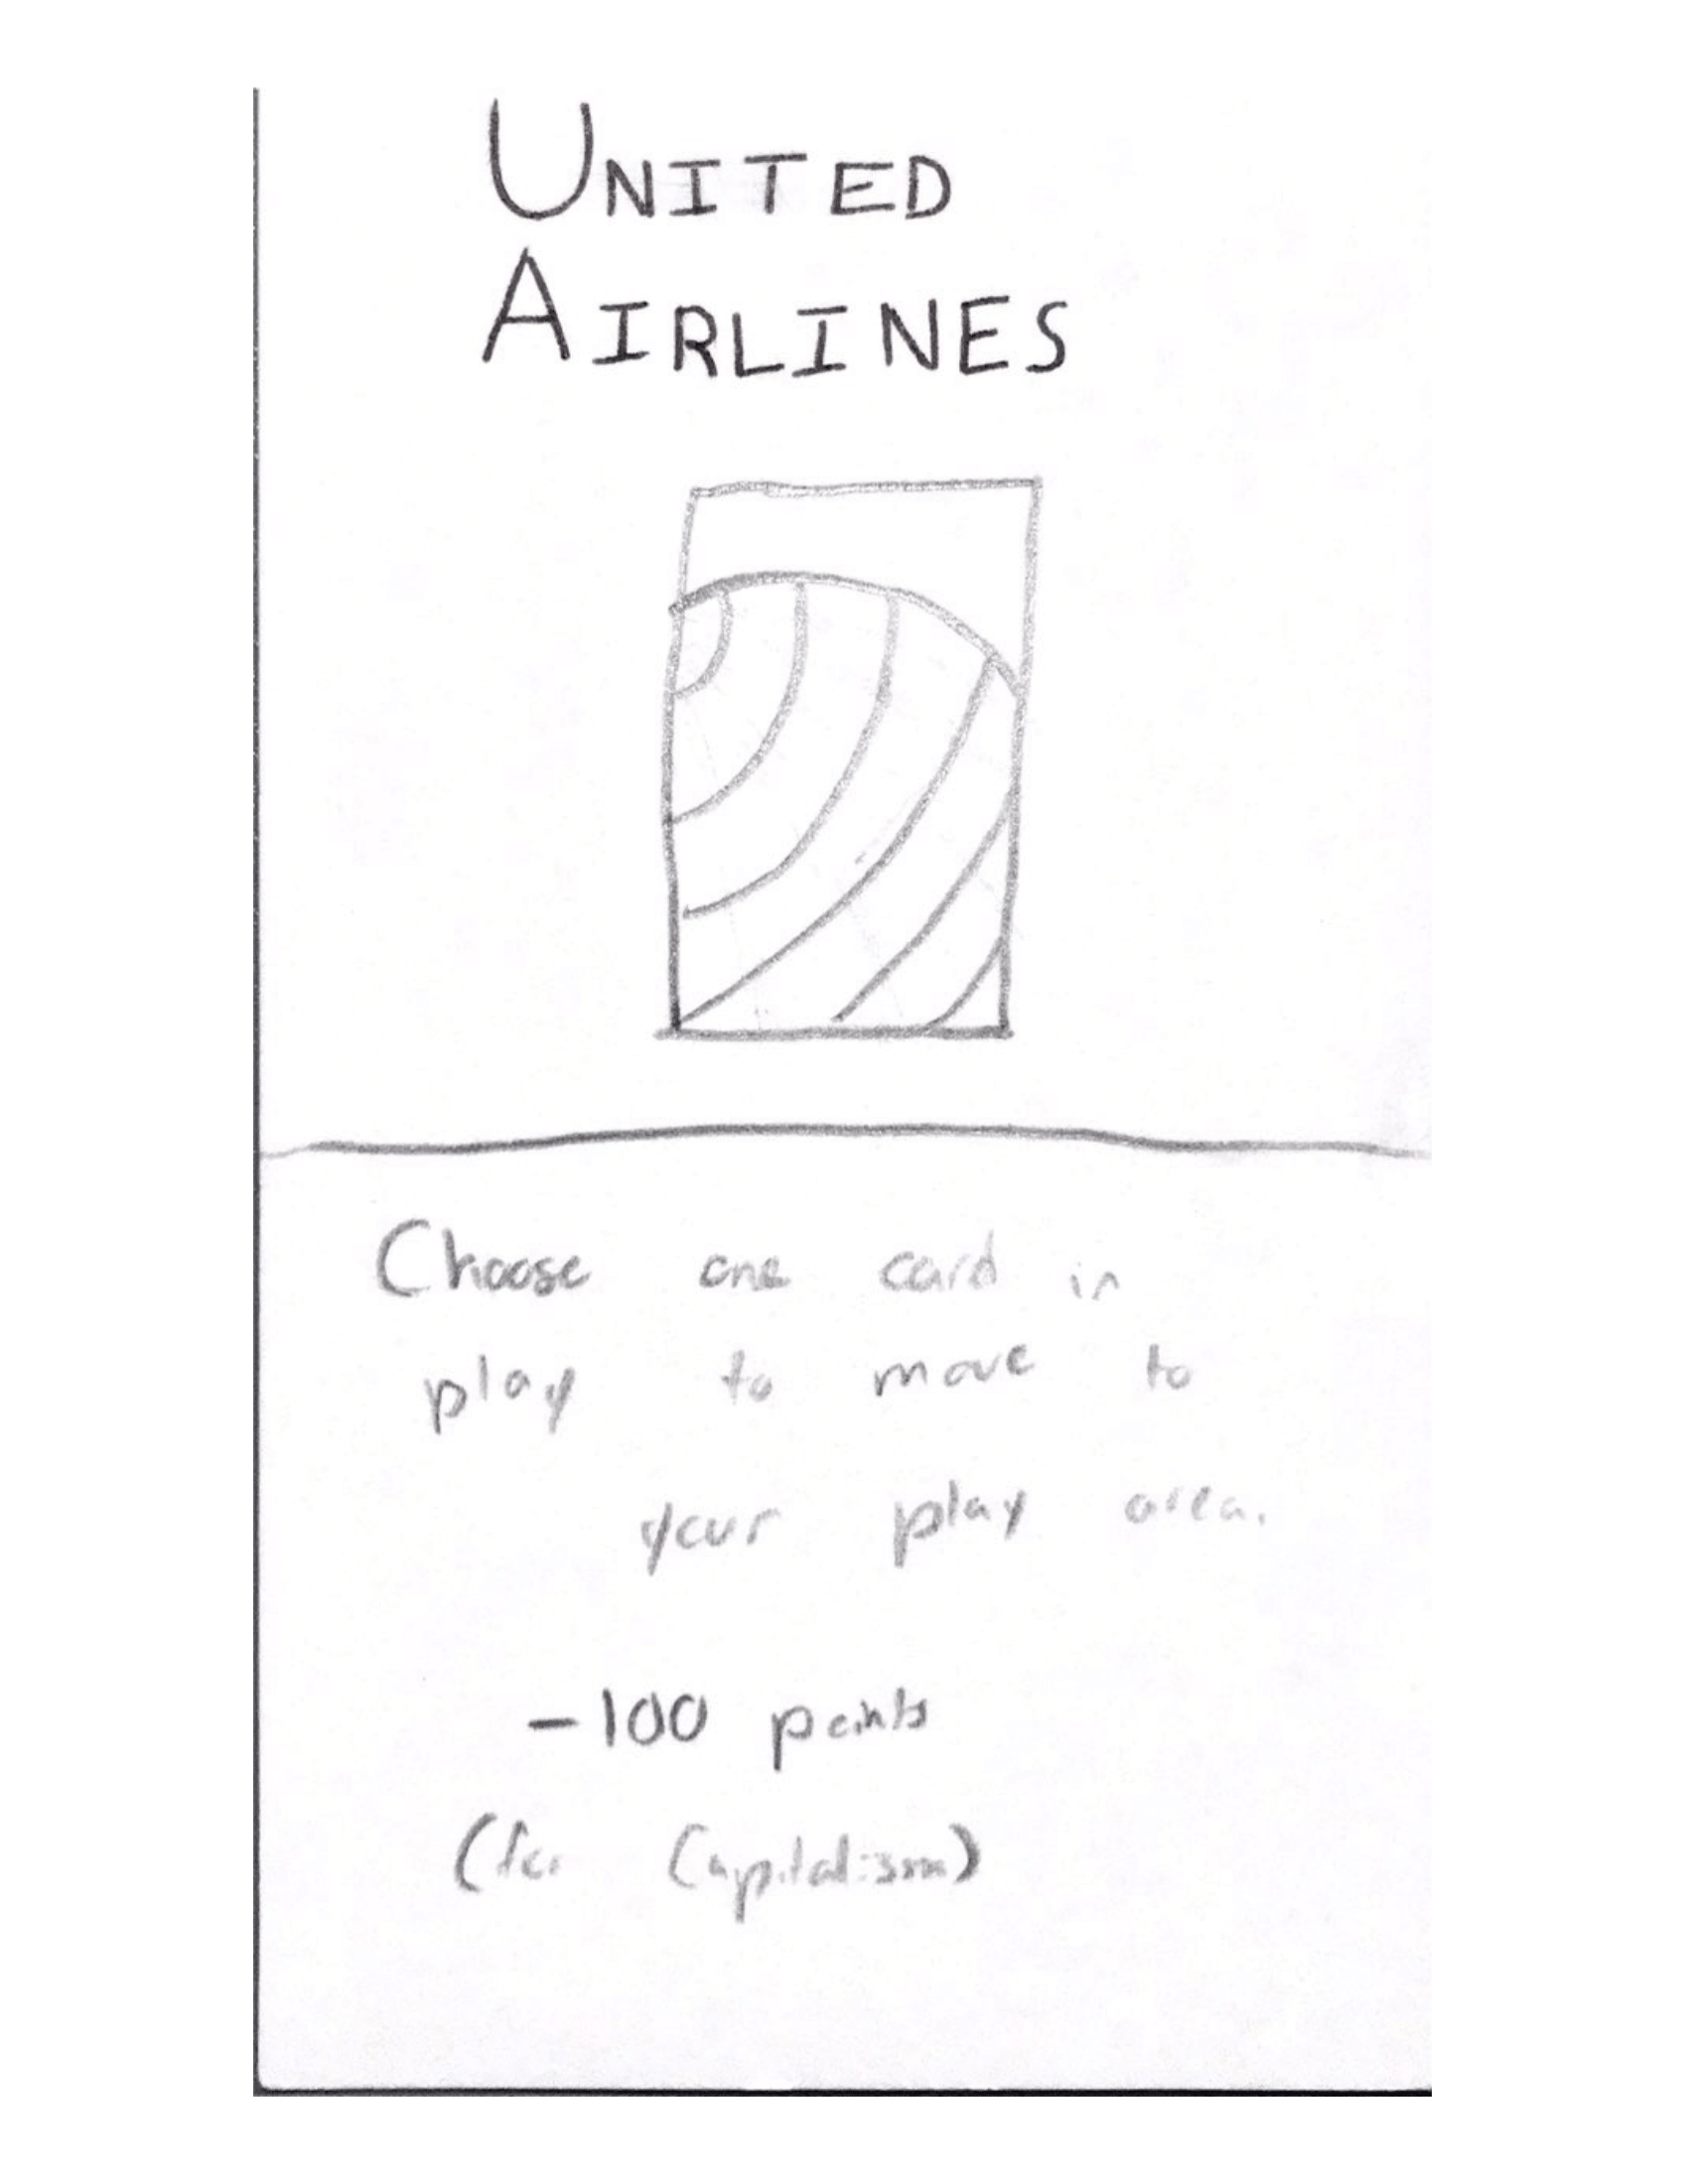 UNITED
AIRLINES
Choose one card in
play to move to
your play area.
-100 points
(for Capitalism)